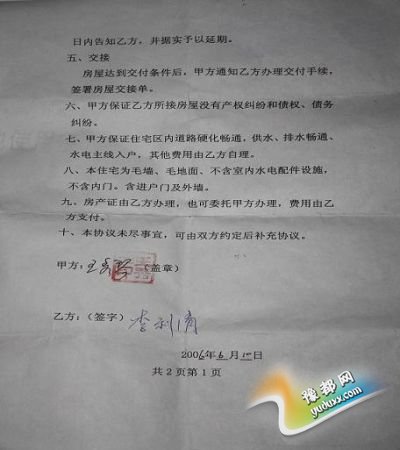 日内告知乙方，并据实予以延期。
五、交接
房屋达到交付条件后，甲方通知乙方办理交付手续，
签署房屋交接单。
六、甲方保证乙方所接房屋没有产权纠纷和债权、债务
纠纷。
七、甲方保证住宅区内道路硬化畅通，供水、排水畅通、
水电主线入户，其他费用由乙方自理。
八、本住宅为毛墙、毛地面、不含室内水电配件设施，
不含内门。含进户门及外墙。
九、房产证由乙方办理，也可委托甲方办理，费用由乙
方支付。
十、本协议未尽事宜，可由双方约定后补充协议。
甲方：（盖章）
乙方：（签字）李利清
2006年6月10日
共2页第1页
豫都网
yuduxx.com